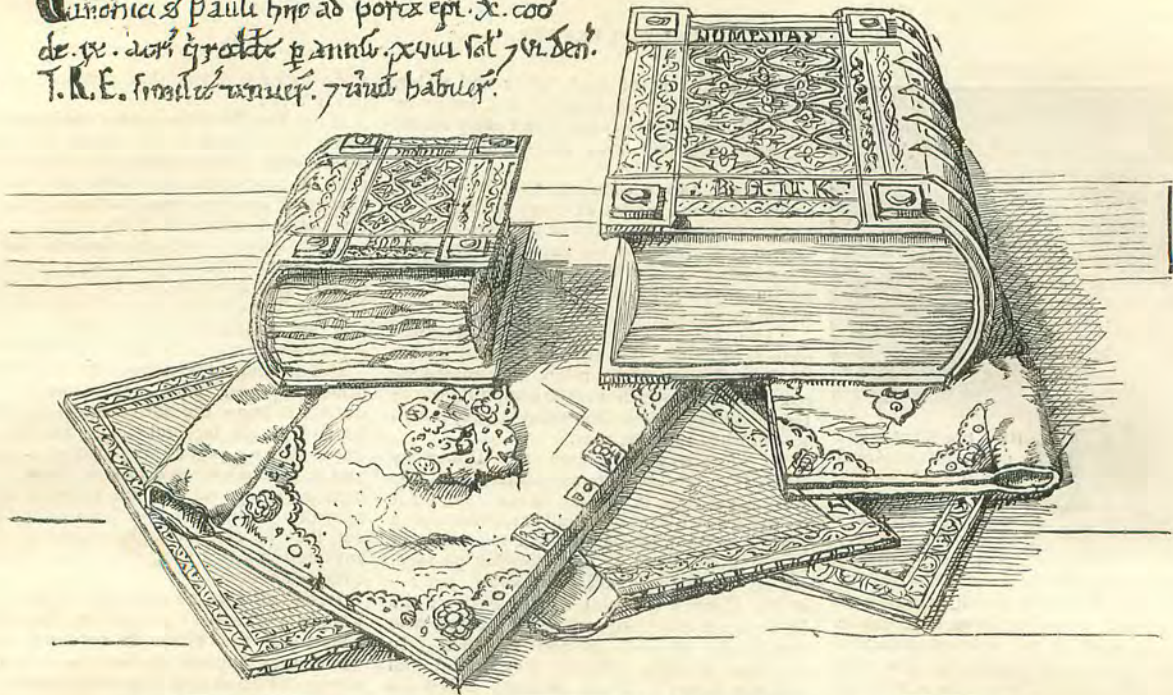 Canonici S Pauli hñt ad portā epi. X. cot
de. ix. acr̃ q̃ reddt̃ p annũ. xviii sol̃ ⁊ vi. den̄.
T.R.E. similit̃ tenuer̃. ⁊ habuer̃.
DOMESDAY
BOOK
BOOK